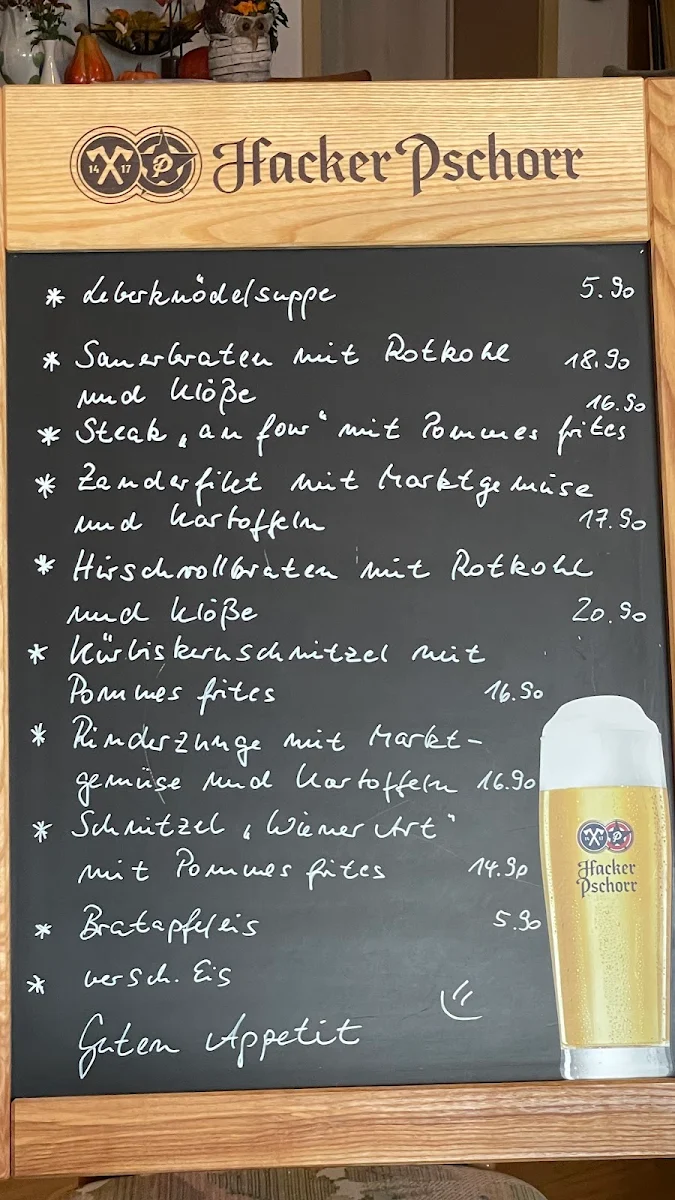 14 17 P Hacker Pschorr
* Leberknödelsuppe 5.90
* Sauerbraten mit Rotkohl 18.90
und Klöße
16.90
* Steak „au four" mit Pommes frites
* Zanderfilet mit Marktgemüse
und Kartoffeln 17.90
* Hirschrollbraten mit Rotkohl
und Klöße 20.90
* Kürbiskernschnitzel mit
Pommes frites 16.90
* Rinderzunge mit Markt-
gemüse und Kartoffeln 16.90
* Schnitzel „Wiener Art"
mit Pommes frites 14.90
* Bratapfeleis 5.90
* versch. Eis
Guten Appetit
Hacker
Pschorr